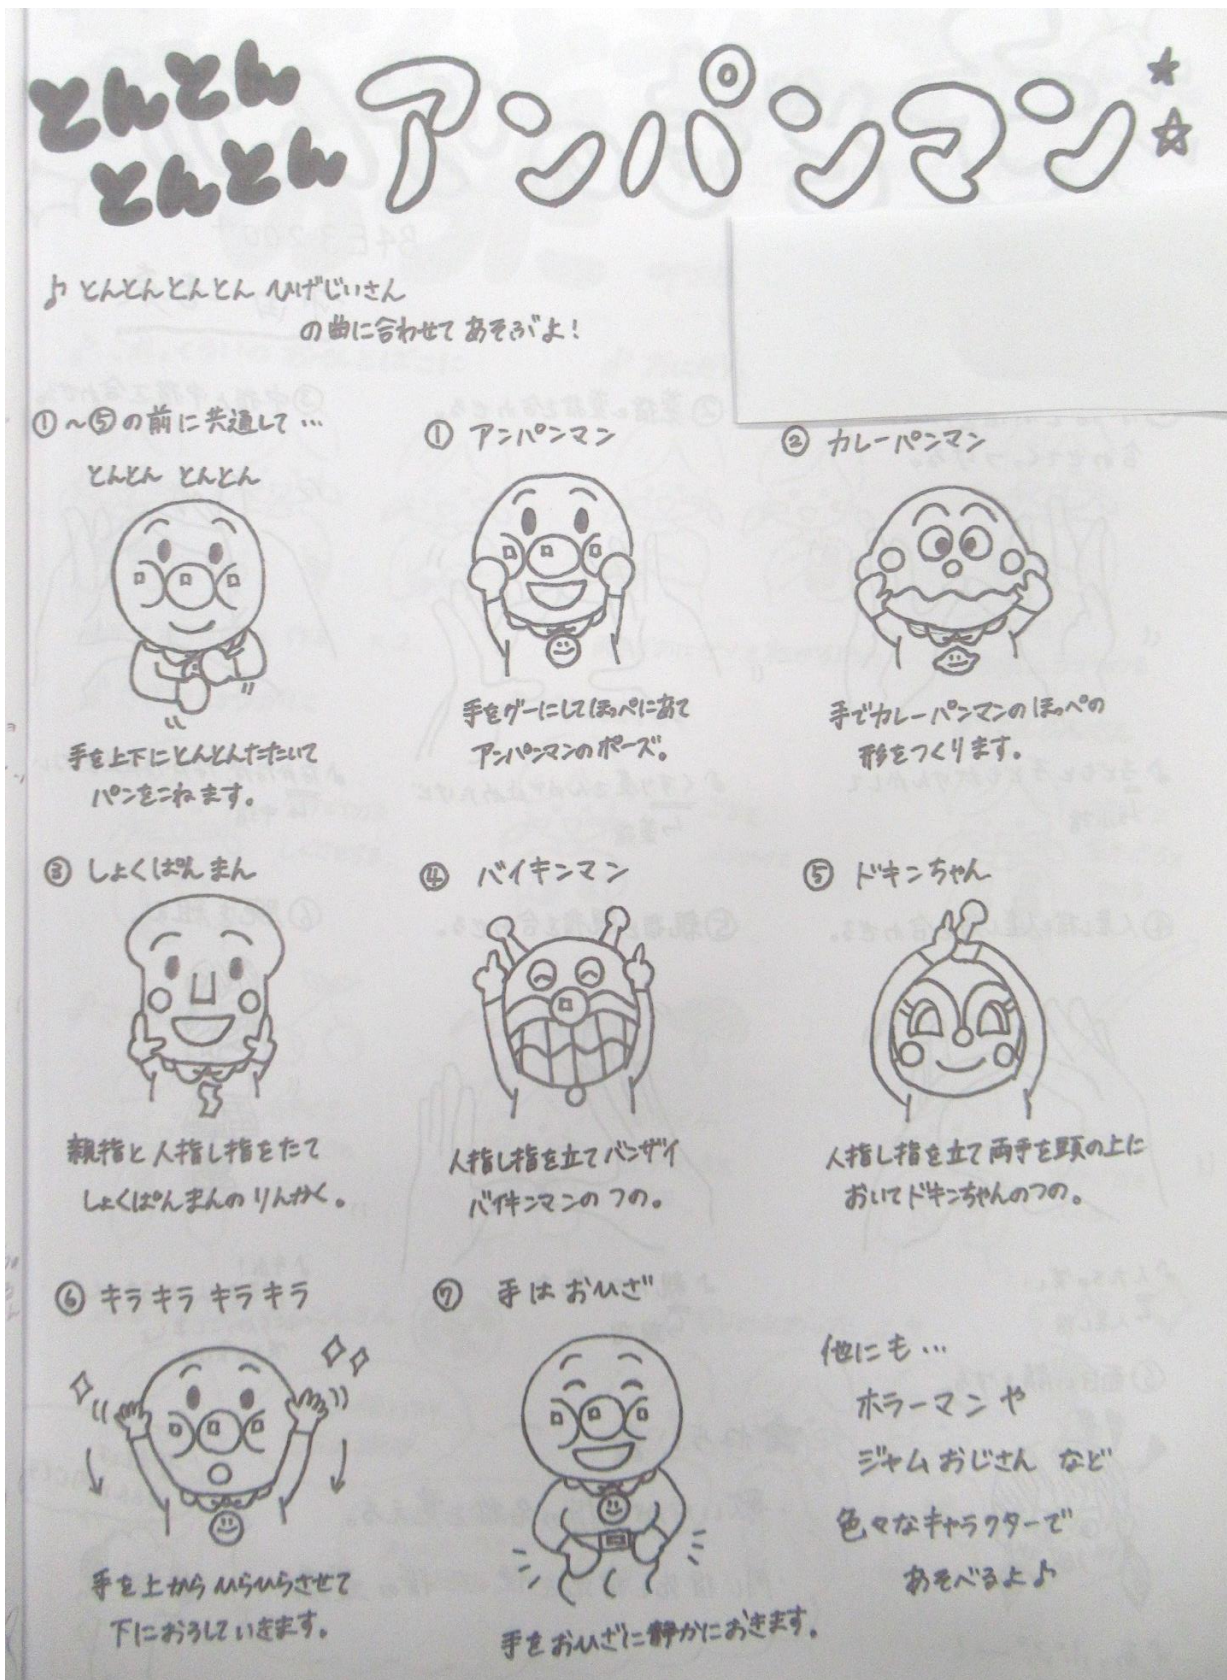 とんとん
とんとん
アンパンマン
♪ とんとんとんとん ひげじいさん
の曲に合わせて あそぶよ！
①～⑤の前に共通して…
とんとん とんとん
手を上下にとんとんたたいて
パンをこねます。
① アンパンマン
手をグーにしてほっぺにあて
アンパンマンのポーズ。
② カレーパンマン
手でカレーパンマンのほっぺの
形をつくります。
③ しょくぱんまん
親指と人指し指をたて
しょくぱんまんのりんかく。
④ バイキンマン
人指し指を立てバンザイ
バイキンマンのつの。
⑤ ドキンちゃん
人指し指を立て両手を頭の上に
おいてドキンちゃんのつの。
⑥ キラキラ キラキラ
手を上からひらひらさせて
下におろしていきます。
⑦ 手はおひざ
手をおひざに静かにおきます。
他にも…
ホラーマンや
ジャムおじさん など
色々なキャラクターで
あそべるよ♪